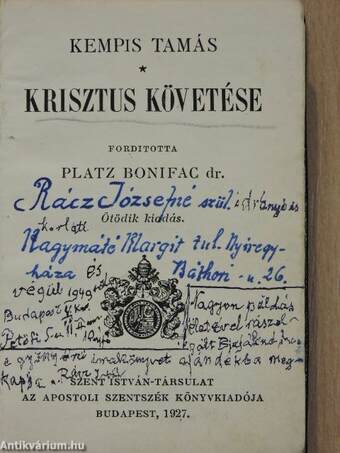 KEMPIS TAMÁS
KRISZTUS KÖVETÉSE
FORDITOTTA
PLATZ BONIFAC dr.
Rácz Józsefné szül.
Ötödik kiadás.
Nagymáté Margit tul. Nyíregy-
háza és Báthori-u. 26.
végül 1949
Budapest
Petőfi S. u.
Nagyon példás
életével
a gyönyörű imakönyvet ajándékba meg-
kapja
SZENT ISTVÁN-TÁRSULAT
AZ APOSTOLI SZENTSZÉK KÖNYVKIADÓJA
BUDAPEST, 1927.
Antikvárium.hu